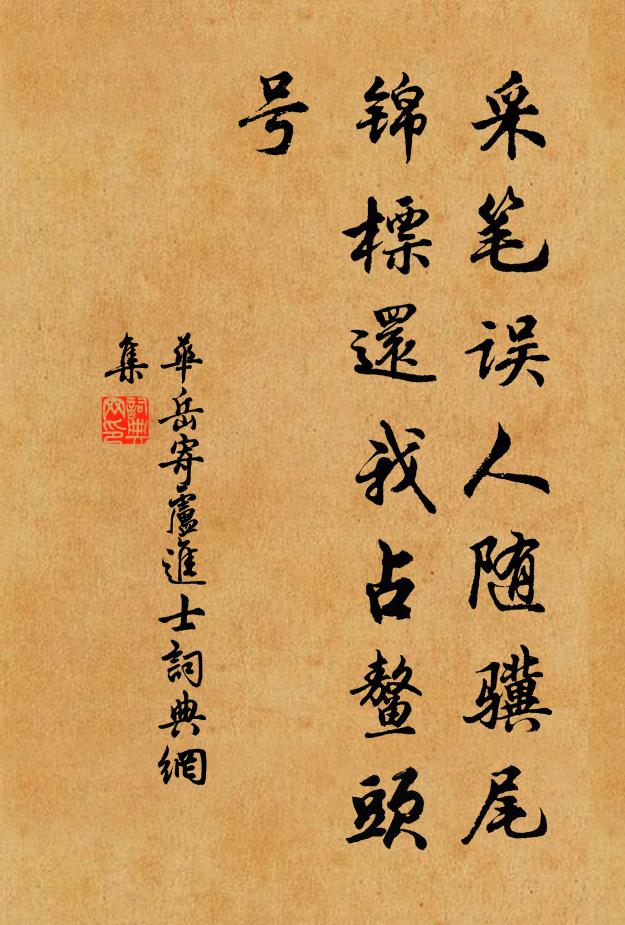 采笔误人随骥尾
锦標還我占鳌頭
号
華岳寄廬進士詞典網
集
詞典
网印